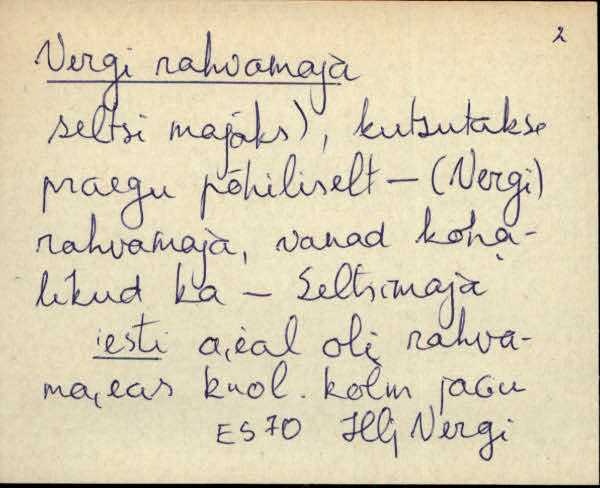 2
Vergi rahvamaja
seltsi majaks), kutsutakse
praegu põhiliselt – (Vergi)
rahvamaja, vanad koha-
likud ka – Seltsimaja
iesti a,ẹal oli rahva-
ma,eas kuol. kolm jaGu
ES 70 Hlj Vergi